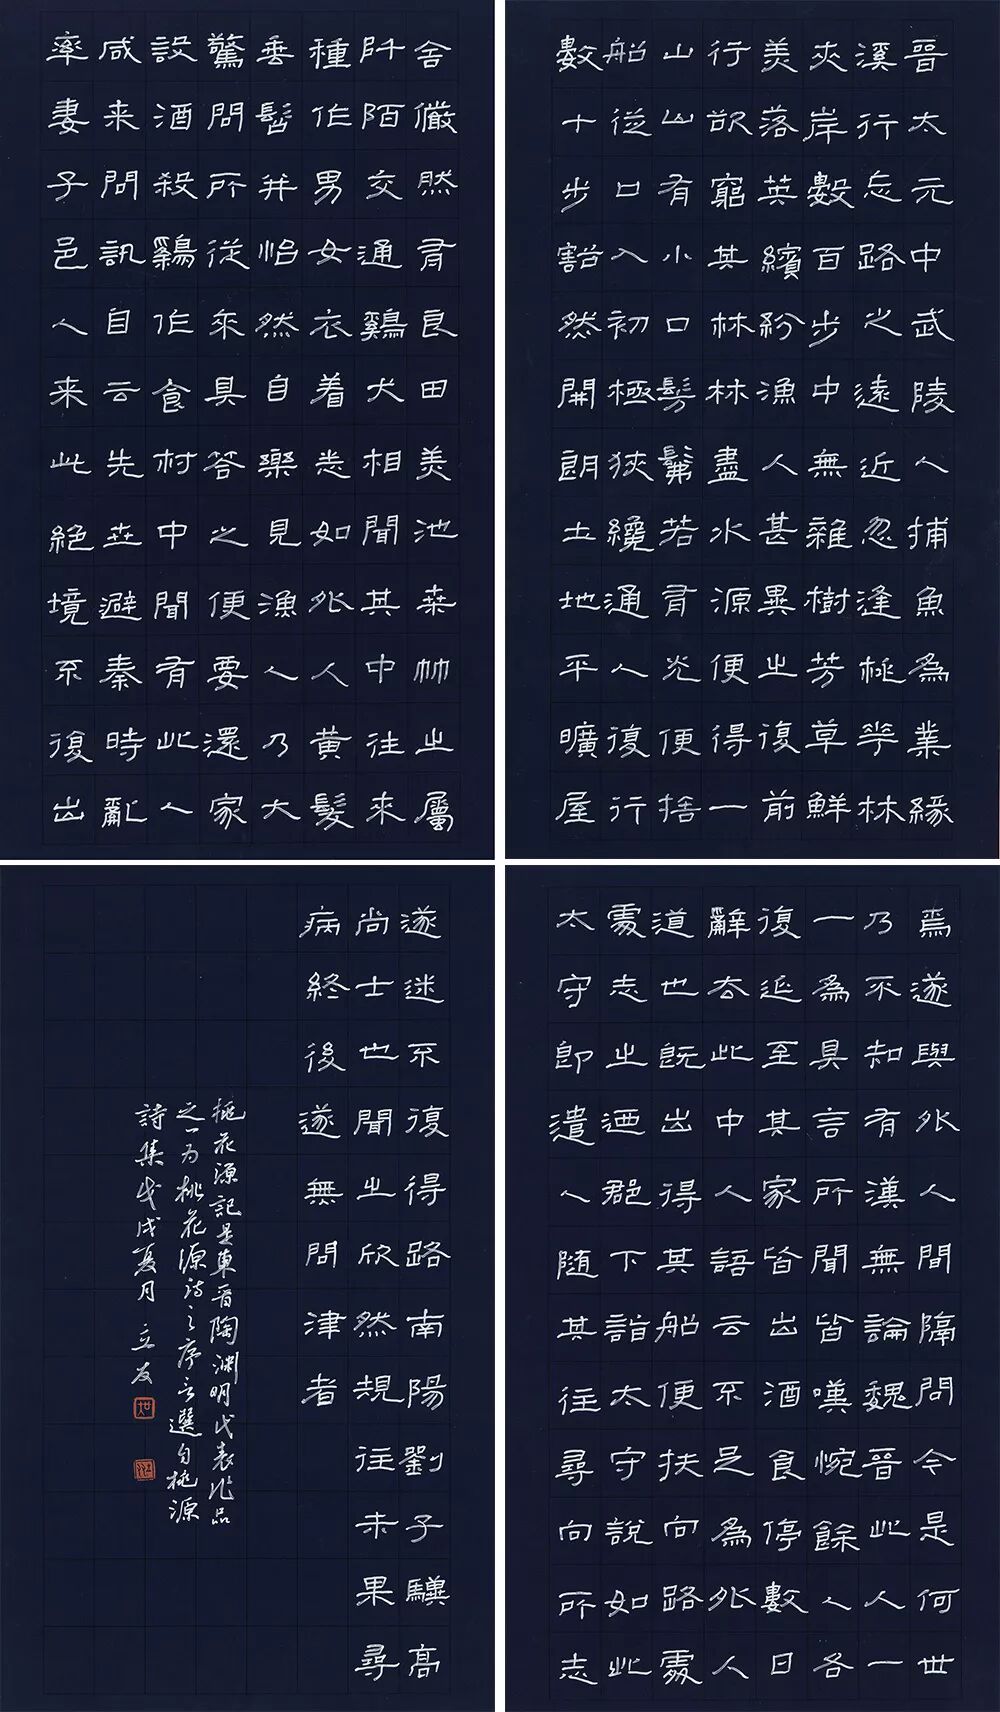 晉太元中武陵人捕魚為業緣
溪行忘路之遠近忽逢桃華林
夾岸數百步中無雜樹芳草鮮
美落英繽紛漁人甚異之復前
行欲窮其林林盡水源便得一
山山有小口髣髴若有光便捨
船從口入初極狹纔通人復行
數十步豁然開朗土地平曠屋
舍儼然有良田美池桑竹之屬
阡陌交通鷄犬相聞其中往來
種作男女衣着悉如外人黃髮
垂髫并怡然自樂見漁人乃大
驚問所從來具答之便要還家
設酒殺鷄作食村中聞有此人
咸来問訊自云先世避秦時亂
率妻子邑人来此絕境不復出
焉遂與外人間隔問今是何世
乃不知有漢無論魏晉此人一
一為具言所聞皆嘆惋餘人各
復延至其家皆出酒食停數日
辭去此中人語云不足為外人
道也既出得其船便扶向路處
處志之迺郡下詣太守說如此
太守即遣人隨其往尋向所志
遂迷不復得路南陽劉子驥高
尚士也聞之欣然規往未果尋
病終後遂無問津者
桃花源記是東晉陶淵明代表作品
之一为桃花源詩之序言選自桃源
詩集戊戌夏月 立友